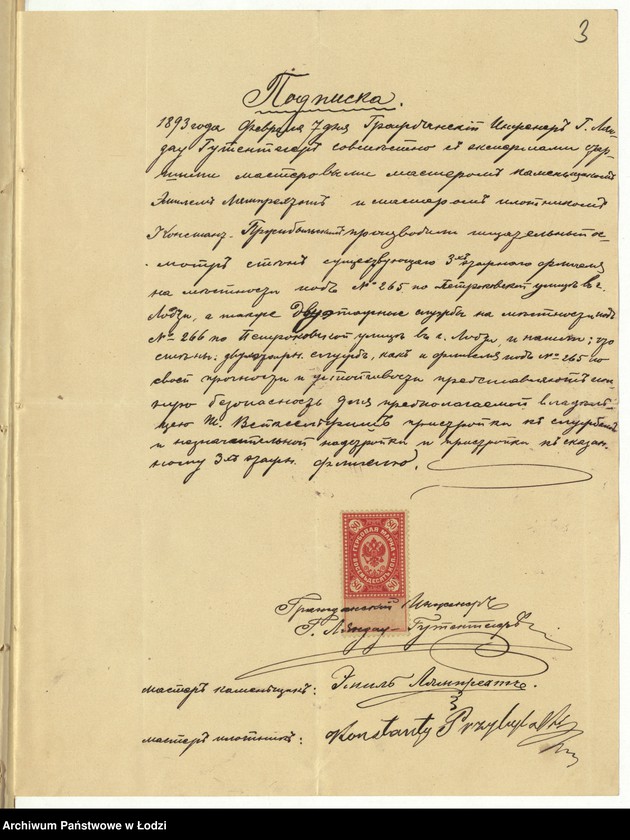 3
Подписка.
1893 года Февраля 7 дня Гражданскій Инженеръ Г. Лан-
дау Гутентегеръ совмѣстно съ
мастеровыми мастеромъ каменьщикомъ
Эмилемъ и мастеромъ плотникомъ
Констант. производили тщательный ос-
мотръ стѣнъ существующаго 3хъ этажнаго флигеля
на мѣстности подъ № 265 по Петроковской улицѣ въ г.
Лодзи, а также двухэтажные службы на мѣстности подъ
№ 266 по Петроковской улицѣ въ г. Лодзи, и нашли: что
стѣны двухэтажн. службъ, какъ и флигеля подъ № 265 по
своей прочности и устойчивости представляютъ пол-
ную безопасность для предполагаемой владѣль-
цемъ пристройки къ службамъ
и незначительной надстройки и пристройки къ сказан-
ному 3хъ этажн. флигелю.
80 80
ГЕРБОВАЯ МАРКА
ВОСЕМЬДЕСЯТЪ КОП.
80 80
Гражданскій Инженеръ
Г. Ландау-Гутентегеръ
мастеръ каменьщикъ: Эмиль
мастеръ плотникъ: Konstanty Przybylski
Archiwum Państwowe w Łodzi